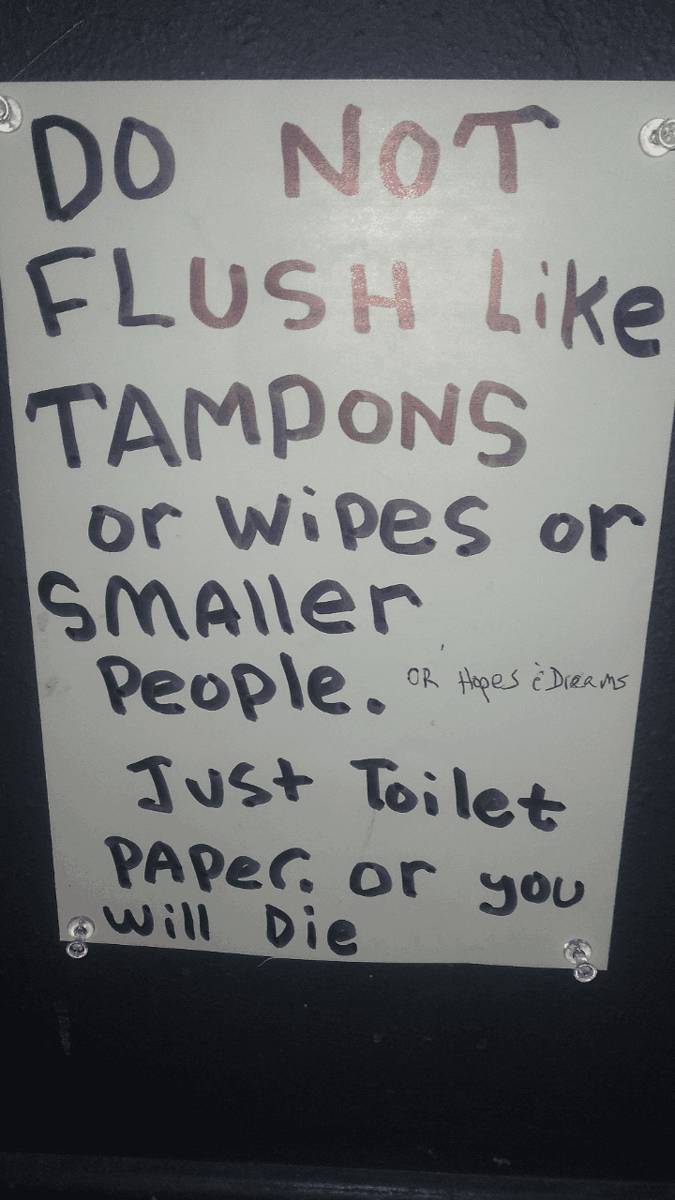 DO NOT
FLUSH Like
TAMPONS
or wipes or
SMAller
People. OR Hopes & Dreams
Just Toilet
PAPer. or you
will Die